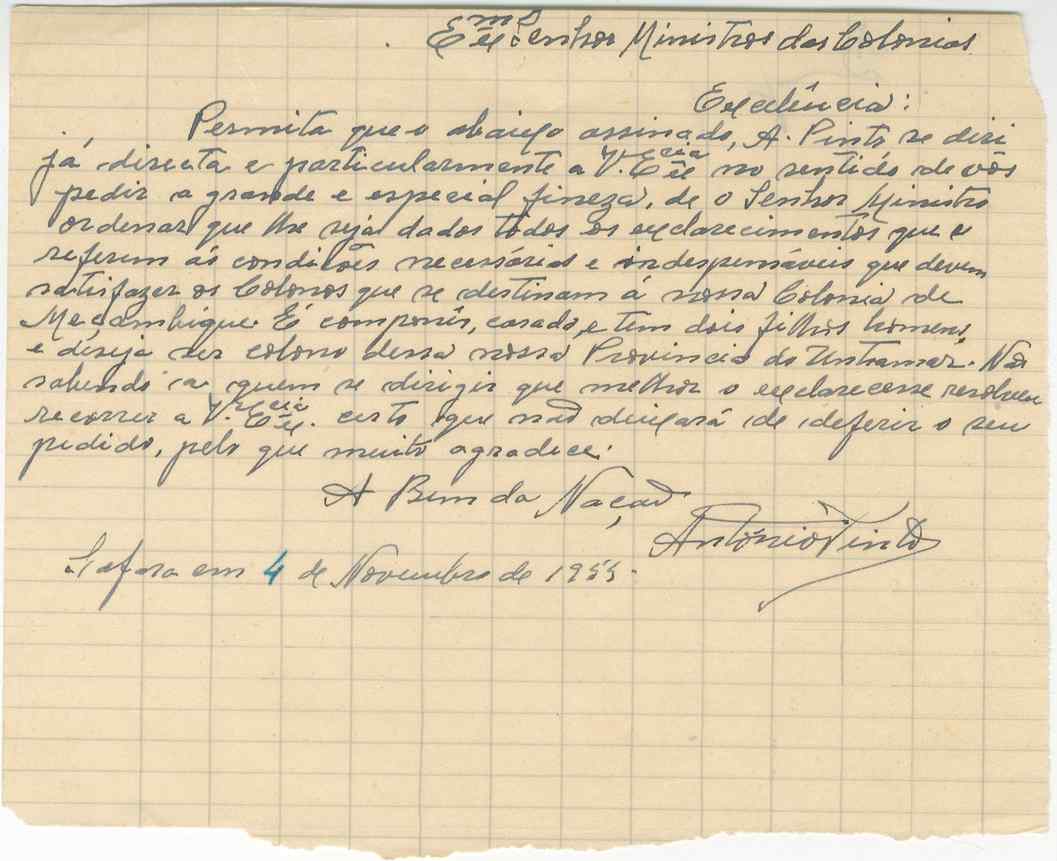 Exmo Senhor Ministros das Colonias
Excelência:
Permita que o abaixo assinado, A. Pinto se diri
já directa e particularmente a V. Excia no sentido de vós
pedir a grande e especial fineza, de o Senhor Ministro
ordenar que lhe sejá dados todos os exclarecimentos que se
referem ás condições necessárias e indespensáveis que devem
satisfazer os Colonos que se destinam á nossa Colonia de
Moçambique. É componês, casado, e tem dois filhos homens,
e diseja ser colono dessa nossa Provincia do Untramar. Não
sabendo a quem se dirigir que melhor o exclarecesse resolveu
recorrer a V. Excia. certo que não deixará de deferir o seu
pedido, pelo que muito agradece.
A Bem da Nação
António Pinto
Safara em 4 de Novembro de 1955.